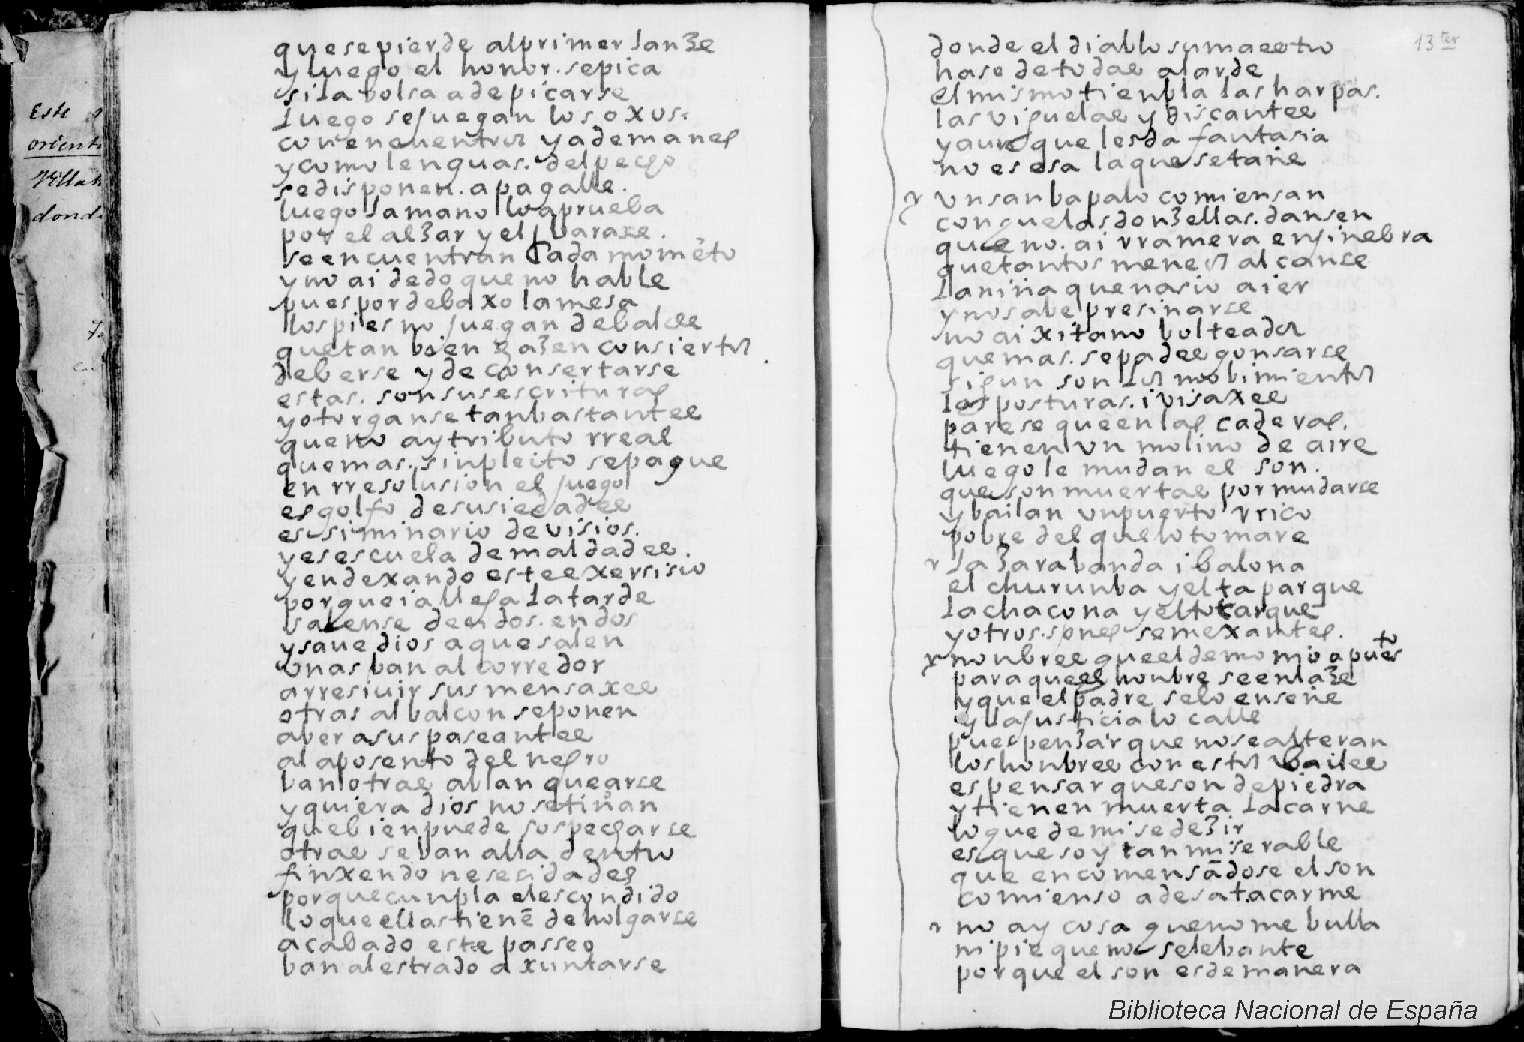 Este
orient
Villa
dond
que se pierde al primer lanze
y luego el honor. se pica
si la bolsa a de picarse
luego se juegan los oxos.
con encuentros y ademanes
y como lenguas. del pecho
se disponen. a pagalle.
luego la mano lo aprueba
por el alzar y el baraxe.
se encuentran Cada momēto
y no ai dedo que no hable
pues por debaxo la mesa
los pies no juegan de balde
que tan bien hazen consiertos
deberse y de consertarse
estas. son sus escrituras
y otorganse tan bastantes
que no ay tributo rreal
que mas. sin pleito se pague
en rresolusion el juego
es golfo de susiedades
es siminario de visios.
y es escuela de maldades.
y en dexando este exersisio
porque ia llega la tarde
salense de en dos. en dos
y save dios a que salen
unas ban al corredor
a rresivir sus mensaxes
otras al balcon se ponen
a ver a sus paseantes
al aposento del negro
ban otras a blanquearse
y quiera dios no se tiñan
que bien puede sospecharse
otras se ban alla dentro
finxendo nesecidades
porque cunpla el escondido
lo que ellas tienē de holgarse
acabado este passeo
ban al estrado a xuntarse
13 ter
donde el diablo su maestro
hase de todas alarde
el mismo tienpla las harpas.
las viguelas y discantes
y aunque les da fantasia
no es esa la que se tañe
un sanbapalo comiensan
con que las donzellas. dansen
que no. ai rramera en jinebra
que tantos meneos alcanse
la niña que nasio aier
y no sabe presinarse
no ai xitano bolteador
que mas. sepa desgonsarse
sigun son los mobimientos
las posturas. i visaxes
parese que en las caderas.
tienen un molino de aire
luego le mudan el son.
que son muertas por mudarse
y bailan un puerto rrico
pobre del que lo tomare
la zarabanda i balona
el churunba y el taparque
la chacona y el totarque
y otros. sones semexantes.
nonbres que el demonio a puesto
para que el honbre se enlaze
y que el padre se lo enseñe
y la justicia lo calle
pues penzar que no se alteran
los honbres con estos bailes
es pensar que son de piedra
y tienen muerta la carne
lo que de mi se dezir
es que soy tan miserable
que en comensādose el son
comienso a desatacarme
no ay cosa que no me bulla
ni pie que no se lebante
porque el son es de manera
Biblioteca Nacional de España